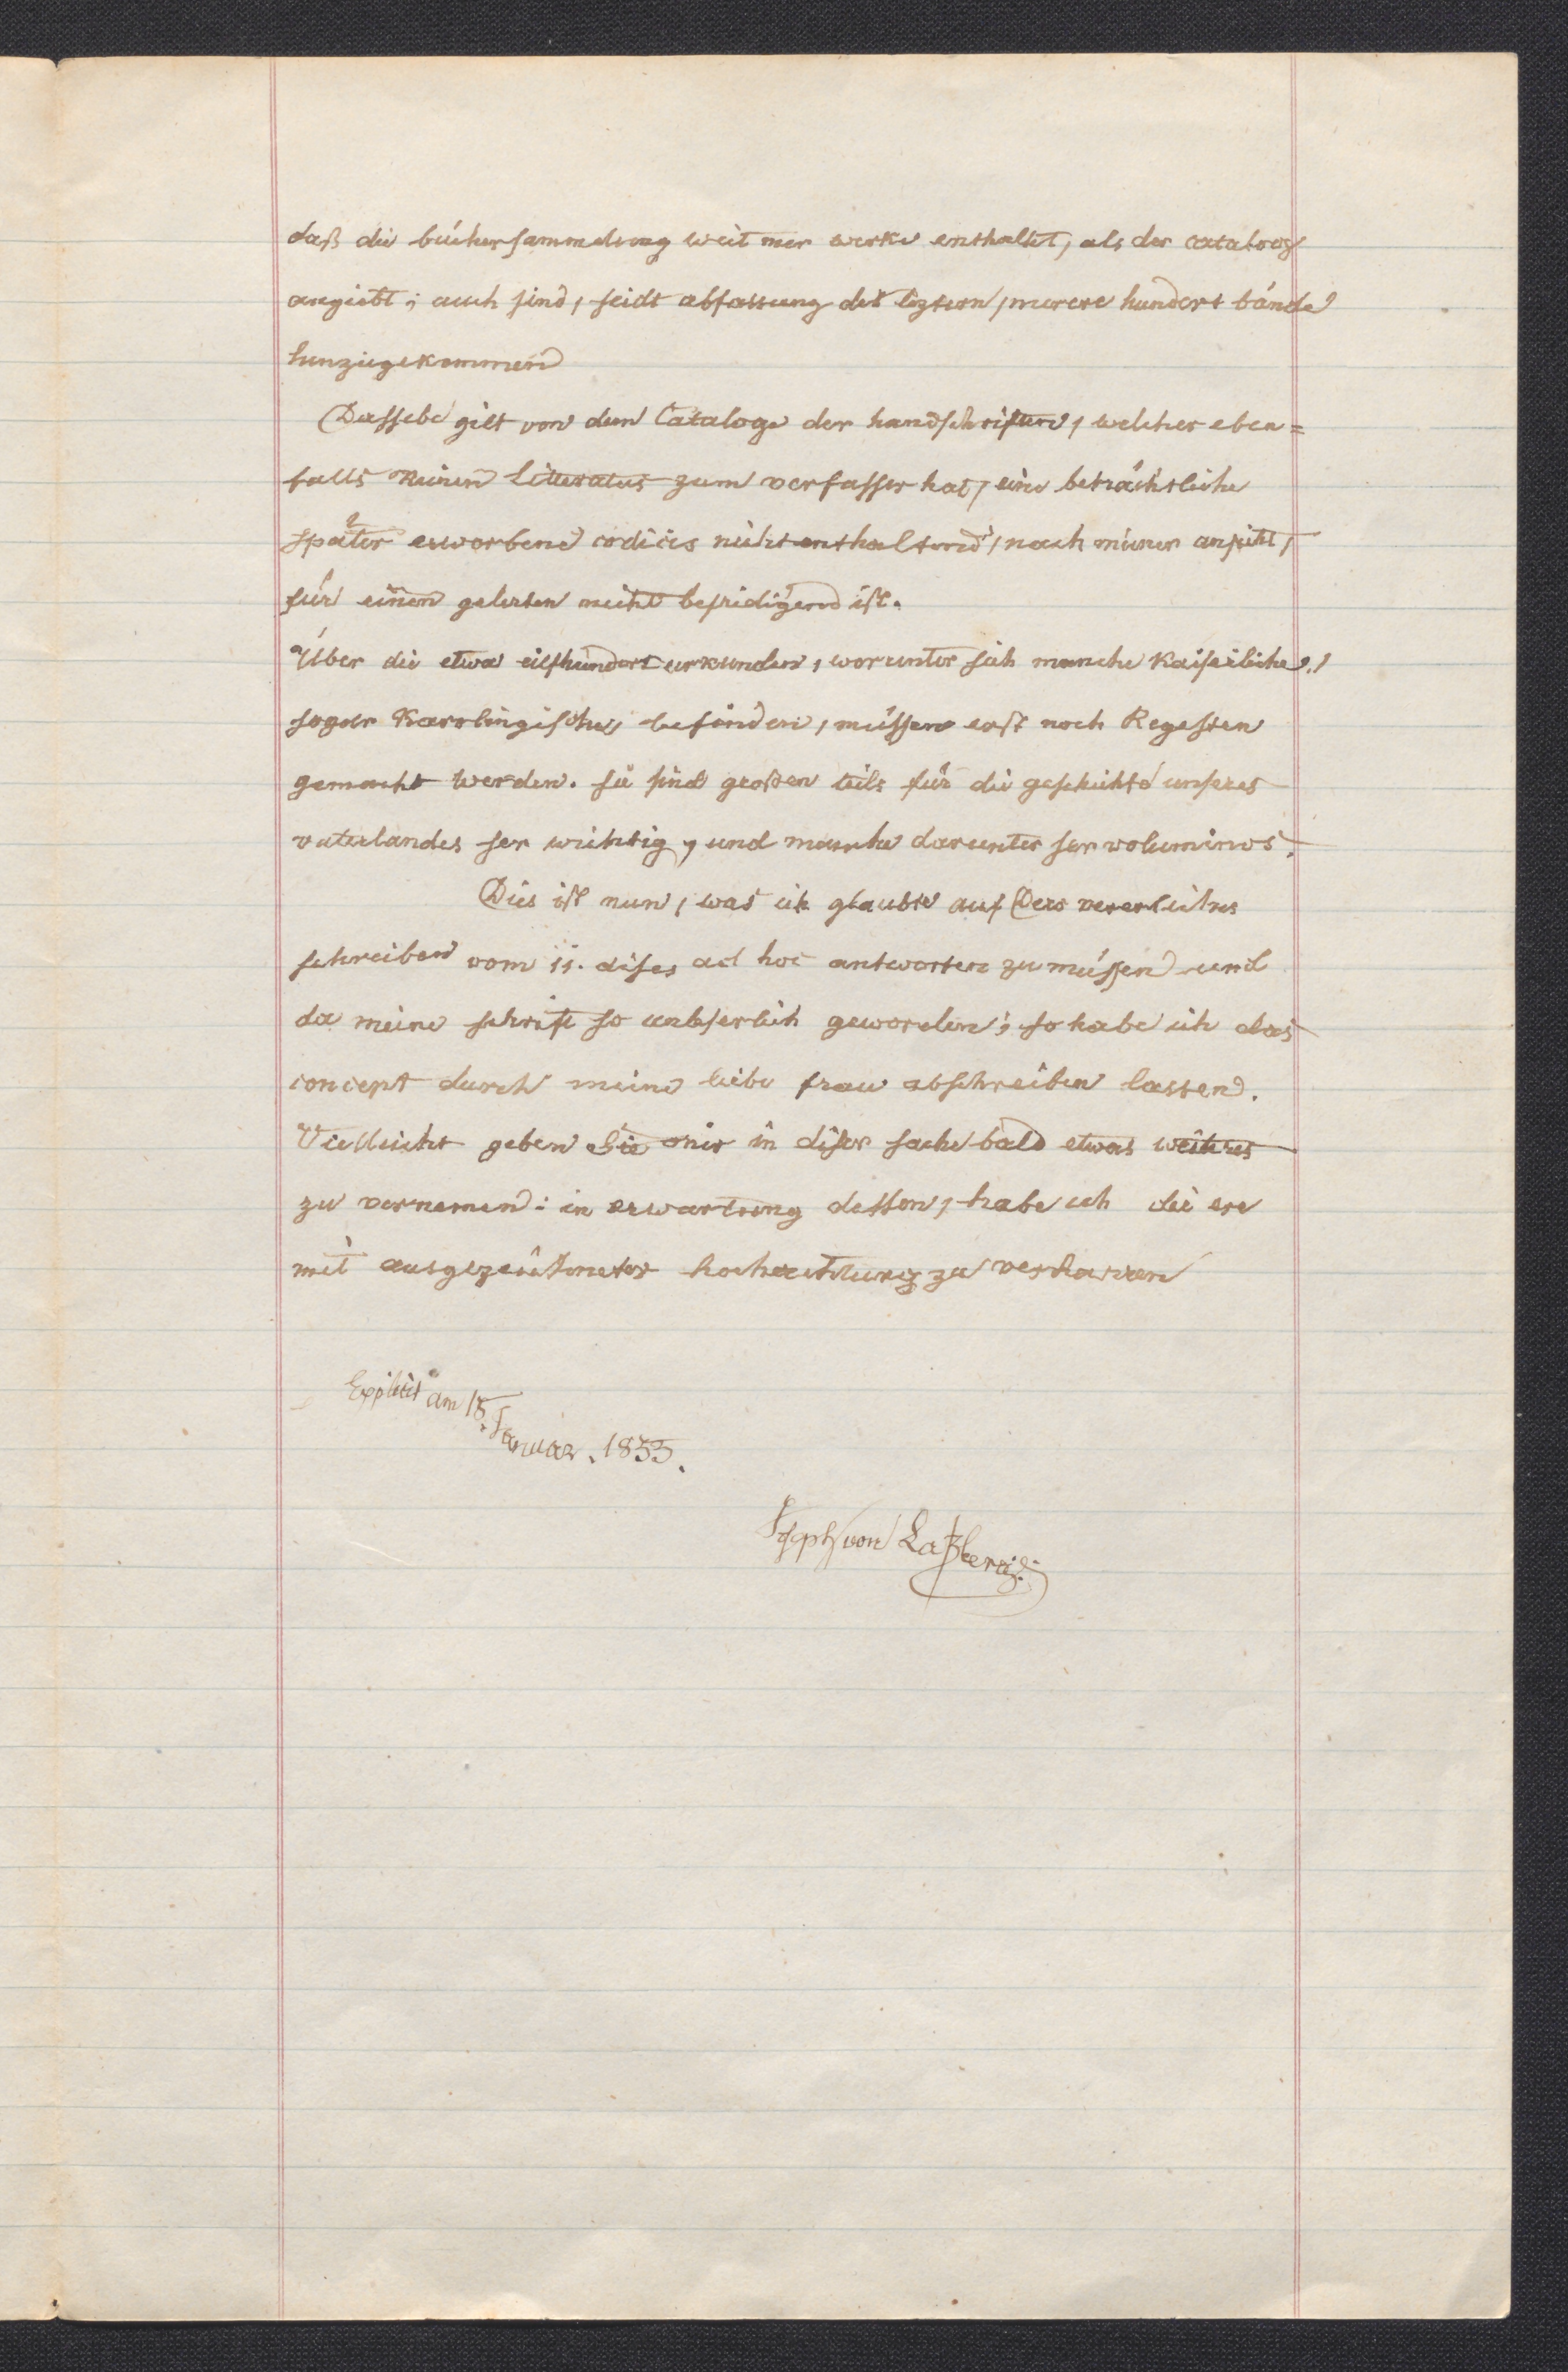 daß die büchersammelung weit mer werke enthaltet, als der catalog
angiebt; auch sind, seidt abfassung des leztern, merere hundert bände
hinzugekommen
Dasselbe gilt von dem Cataloge der handschriften, welcher eben=
falls keinen Litteratus zum verfasser hat, eine beträchtliche
später erworbene codices nicht enthaltend, nach meiner ansicht,
für einen gelerten nicht befridigend ist.
Über die etwa eilfhundert urkunden, worunter sich manche Kaiserliche,
sogar Karolingische, befinden, müssen erst noch Regesten
gemacht werden. sie sind großen teils für die geschichte unseres
vaterlandes ser wichtig, und manche darunter ser voluminos.
Dies ist nun, was ich glaubte auf Dero vererliches
schreiben vom 11. dises ad hoc antworten zu müssen und
da meine schrift so unleserlich geworden; so habe ich das
concept durch meine liebe frau abschreiben lassen.
Vielleicht geben Sie mir in diser sache bald etwas weiteres
zu vernemen: in erwartung dessen, habe ich die ere
mit ausgezeichneter hochachtung zu verharren
Explicit am 18. Januar. 1853.
Joseph von Laßberg.